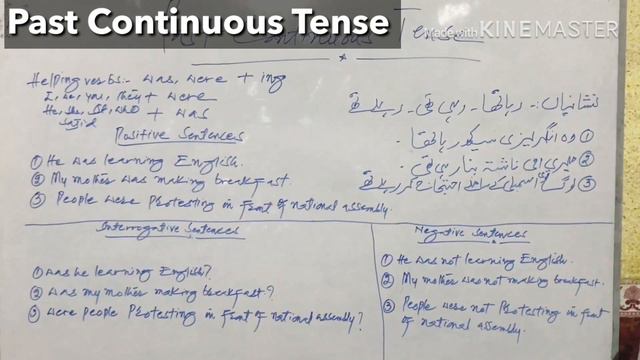 Past Continuous Tense
Past Continuous Tense
Made with KINEMASTER
Helping verbs:- was, were + ing
I, we, you, they + were
He, she, It, who + was
Sajid
Positive Sentences
① He was learning English.
② My mother was making breakfast.
③ People were Protesting in front of national assembly.
نشانیاں:- رہا تھا - رہی تھی - رہے تھے
① وہ انگریزی سیکھ رہا تھا -
② میری امی ناشتہ بنا رہی تھی -
③ لوگ قومی اسمبلی کے سامنے احتجاج کر رہے تھے
Interrogative Sentences
① was he learning English?
② was my mother making breakfast?
③ were people Protesting in front of national assembly?
Negative Sentences
① He was not learning English.
② My mother was not making breakfast.
③ People were not Protesting in front
of national assembly.